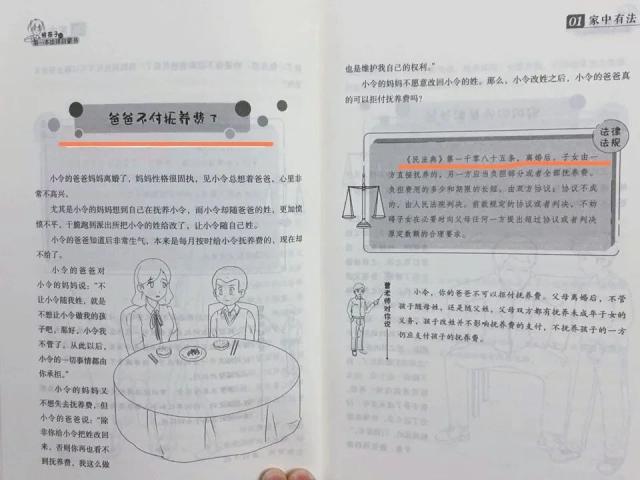 给孩子的
第一本法律启蒙书
爸爸不付抚养费了
小令的爸爸妈妈离婚了，妈妈性格很固执，见小令总想着爸爸，心里非
常不高兴。
尤其是小令的妈妈想到自己在抚养小令，而小令却随爸爸的姓，更加愤
愤不平，干脆跑到派出所把小令的姓给改了，让小令随自己姓。
小令的爸爸知道后非常生气，本来是每月按时给小令抚养费的，现在却
不给了。
小令的爸爸对
小令的妈妈说：“不
让小令随我姓，就是
不想让小令做我的孩
子吧，那好，小令我
不管了，从此以后，
小令的一切事情都由
你承担。”
小令的妈妈又
不想失去抚养费，但
小令的爸爸说：“除
非你给小令把姓改回
来，否则你再也看不
到抚养费，我这么做
01 家中有法
也是维护我自己的权利。”
小令的妈妈不愿意改回小令的姓。那么，小令改姓之后，小令的爸爸真
的可以拒付抚养费吗？
法律
法规
《民法典》第一千零八十五条，离婚后，子女由一
方直接抚养的，另一方应当负担部分或者全部抚养费。
负担费用的多少和期限的长短，由双方协议；协议不成
的，由人民法院判决。前款规定的协议或者判决，不妨
碍子女在必要时向父母任何一方提出超过协议或者判决
原定数额的合理要求。
曾老师对你说
小令，你的爸爸不可以拒付抚养费。父母离婚后，不管
孩子随母姓，还是随父姓，父母双方都有抚养未成年子女的
义务，孩子改姓并不影响抚养费的支付，不抚养孩子的一方
仍应支付孩子的抚养费。